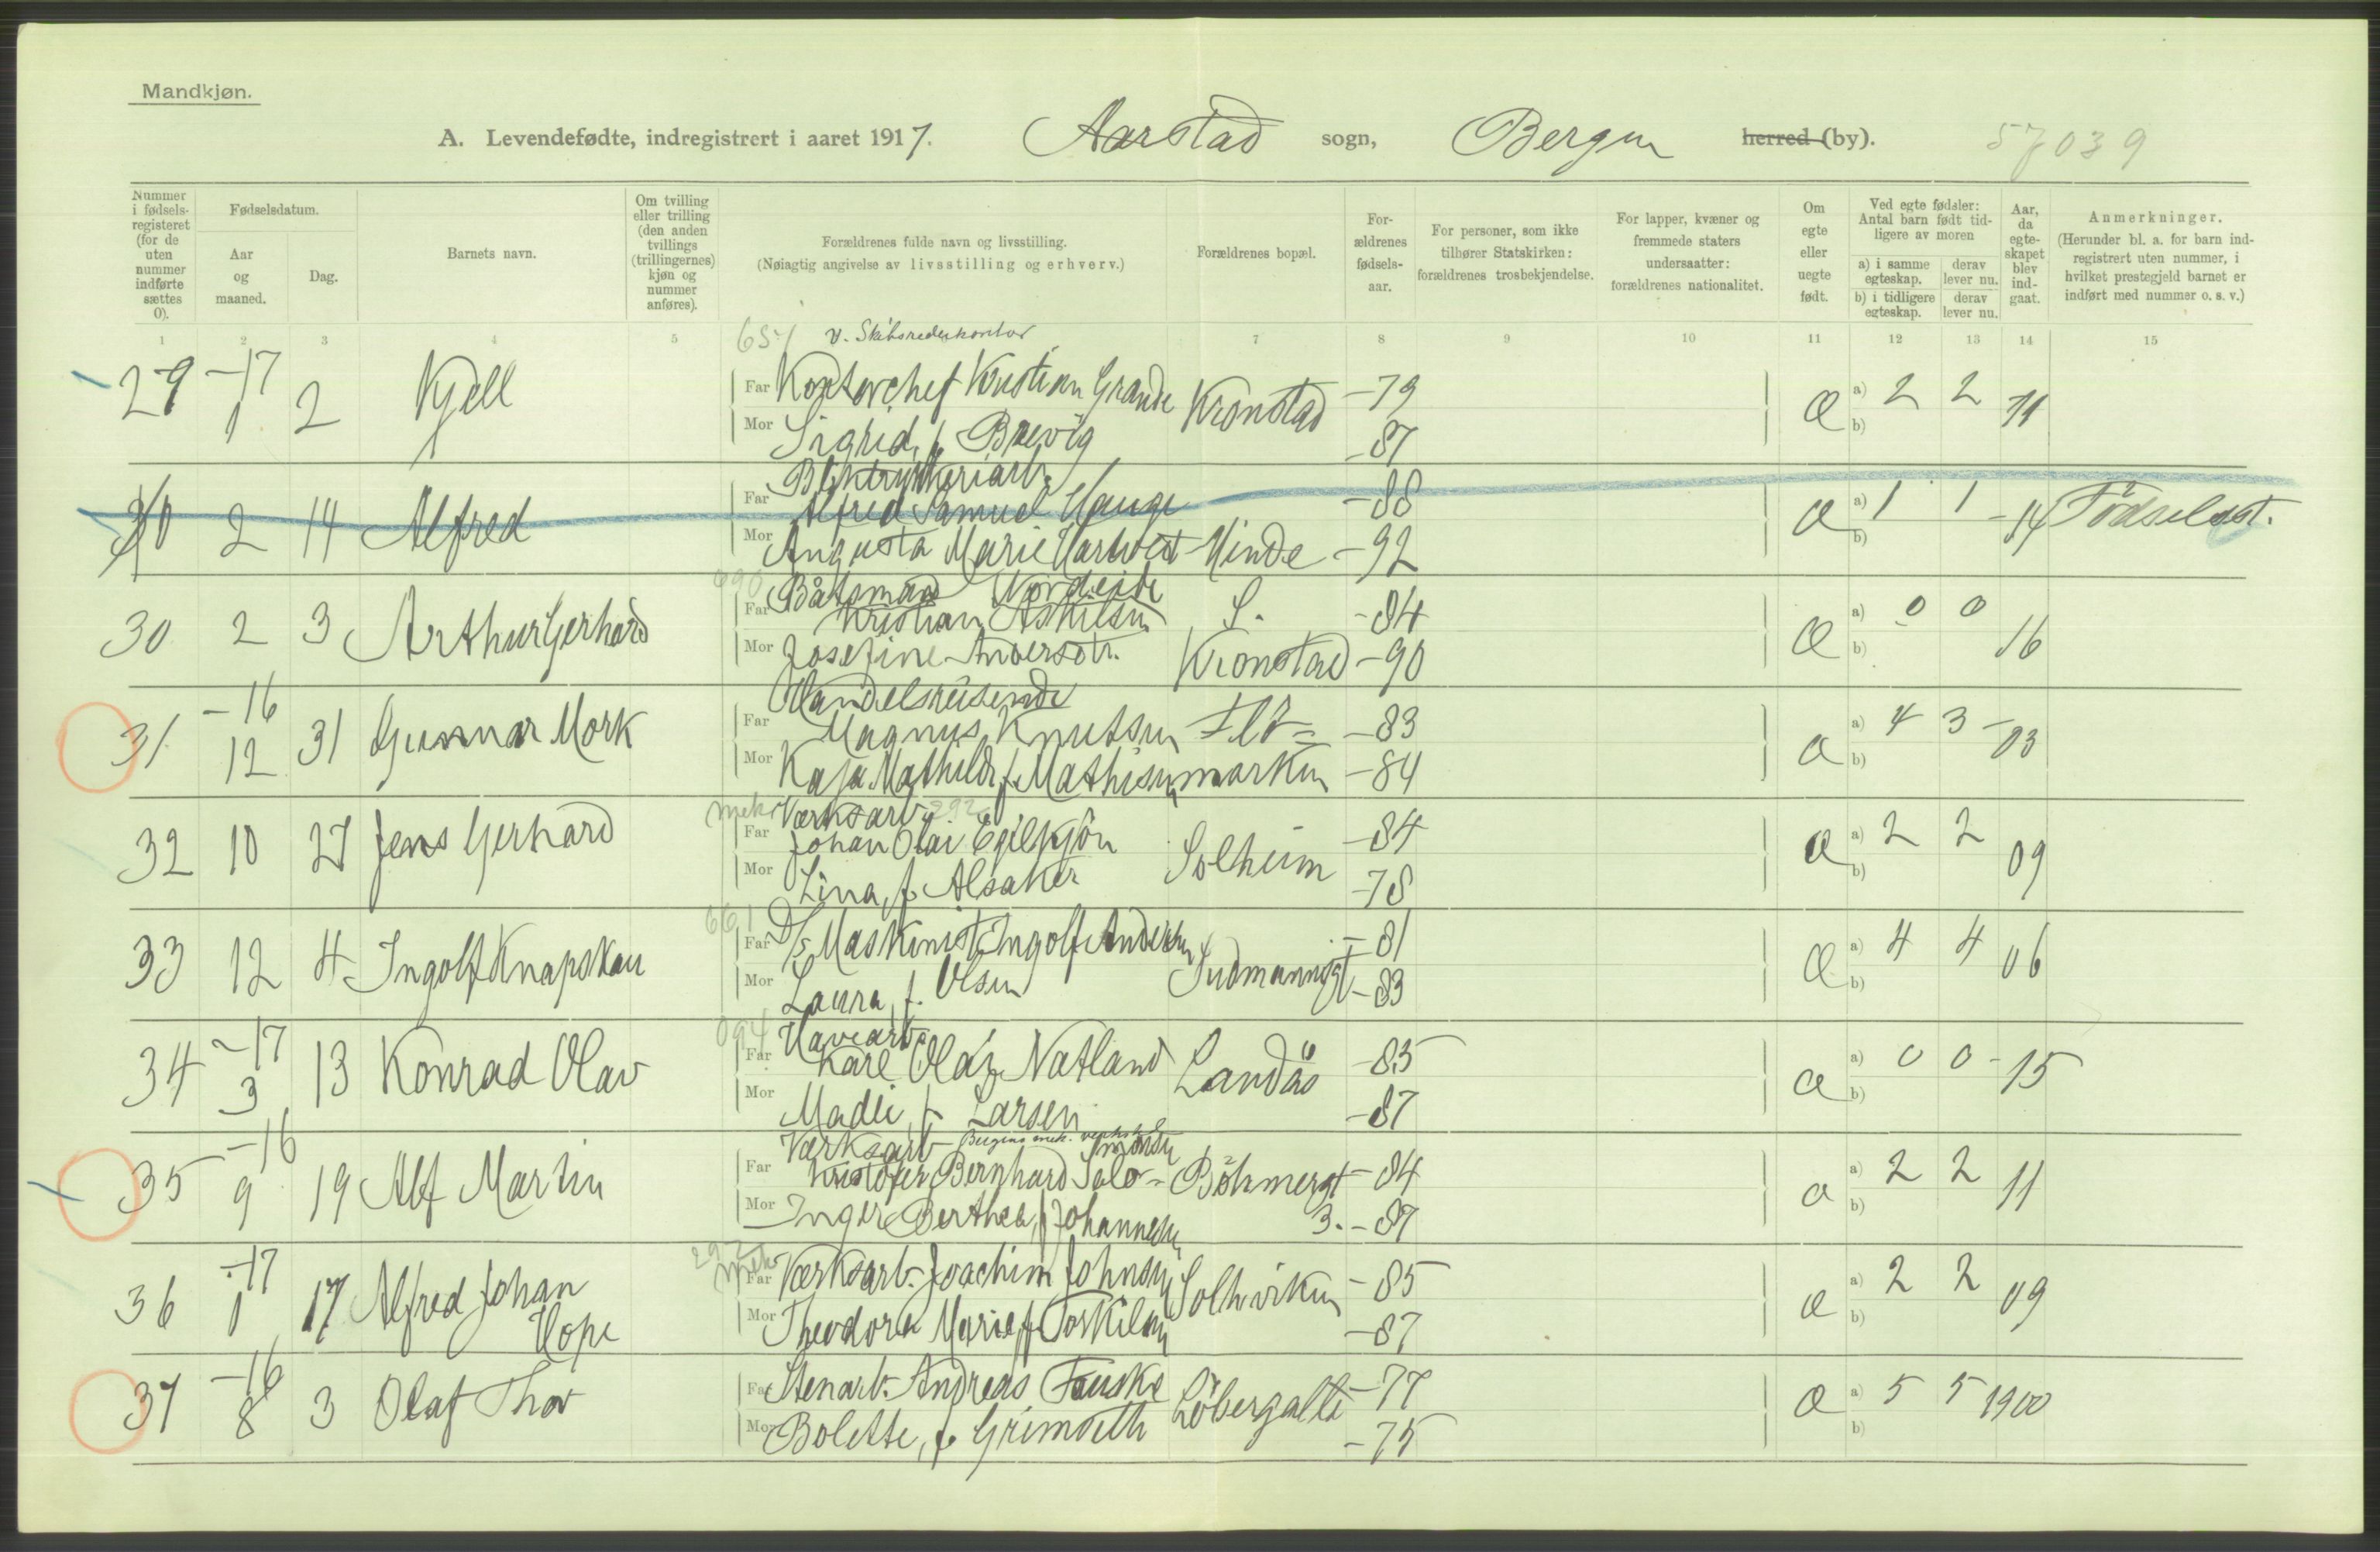 Mandkjøn.
A. Levendefødte, indregistrert i aaret 1917. Aarstad sogn, Bergen herred (by). 57039
Nummer i fødselsregisteret (for de uten nummer indførte sættes 0).
Fødselsdatum.
Aar og maaned.
Dag.
Barnets navn.
Om tvilling eller trilling (den anden tvillings (trillingernes) kjøn og nummer anføres).
Forældrenes fulde navn og livsstilling.
(Nøiagtig angivelse av livsstilling og erhverv.)
Forældrenes bopæl.
Forældrenes fødselsaar.
For personer, som ikke tilhører Statskirken: forældrenes trosbekjendelse.
For lapper, kvæner og fremmede staters undersaatter: forældrenes nationalitet.
Om egte eller uegte født.
Ved egte fødsler: Antal barn født tidligere av moren
a) i samme egteskap. derav lever nu.
b) i tidligere egteskap. derav lever nu.
Aar, da egteskapet blev indgaat.
Anmerkninger.
(Herunder bl. a. for barn indregistrert uten nummer, i hvilket prestegjeld barnet er indført med nummer o. s. v.)
1 2 3 4 5 7 8 9 10 11 12 13 14 15
v. Skibsrederkontor
29 -17 1 2 Kjell
Far Kontorchef Kristian Grande Kronstad -79 a) 2 2 11
Mor Sigrid, f. Brevig -87 b)
Alfred 2 14
Far Alfred Samuel Hauge -88 a) 1 1 -14 Fødselsst.
Mor Augusta Marie Hartvedt Minde -92 b)
30 2 3 Arthur Gerhard
Båtsmand Nordeide
Far Kristian Askilsen S. -84 a) 0 0 16
Mor Josefine Andersdtr. Kronstad -90 b)
31 -16 12 31 Gunnar Mork
Handelsreisende
Far Magnus Knutsen -83 a) 4 3 -03
Mor Kaja Mathilde, f. Mathisen marken -84 b)
32 10 27 Jens Gerhard
mek Værksarb. 292
Far Johan Olai Solheim -84 a) 2 2 09
Mor Lina, f. Alsaker -78 b)
661
33 12 4 Ingolf Knapskau
Far D/s Maskinist Ingolf Andersen -81 a) 4 4 06
Mor Laura, f. Olsen -83 b)
34 -17 3 13 Konrad Olav
Havearb.
Far Karl Olai Natland Landås -85 a) 0 0 -15
Mor Madli, f. Larsen -87 b)
35 -16 9 19 Alf Martin
Værksarb Bergens mek. verksted
Far Kristofer Bernhard Böhmergt -84 a) 2 2 11
Mor Inger Berthea, f. Johannesen 3. -87 b)
292 mek
36 -17 1 17 Alfred Johan Hope
Far Værksarb. Joachim Johnsen Solheiviken -85 a) 2 2 09
Mor Theodora Marie, f. Torkilsen -87 b)
37 -16 8 3 Olaf Thor
Far Stenarb. Andreas Fauske -77 a) 5 5 1900
Mor Bolette, f. -75 b)